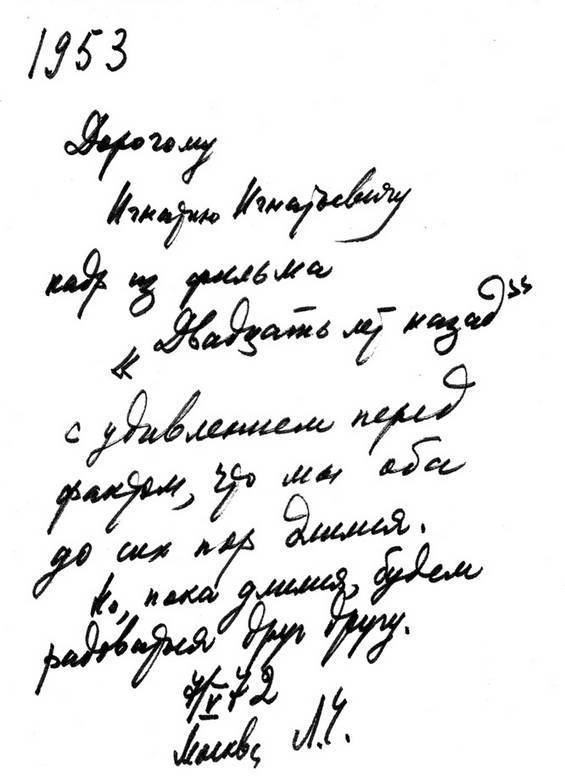 1953
Дорогому
Игнатию Игнатьевичу
кадр из фильма
„Двадцать лет назад”
с удивлением перед
фактом, что мы оба
до сих пор длимся.
Но, пока длимся, будем
радоваться друг другу.
7/V 72
Москва Л.Ч.